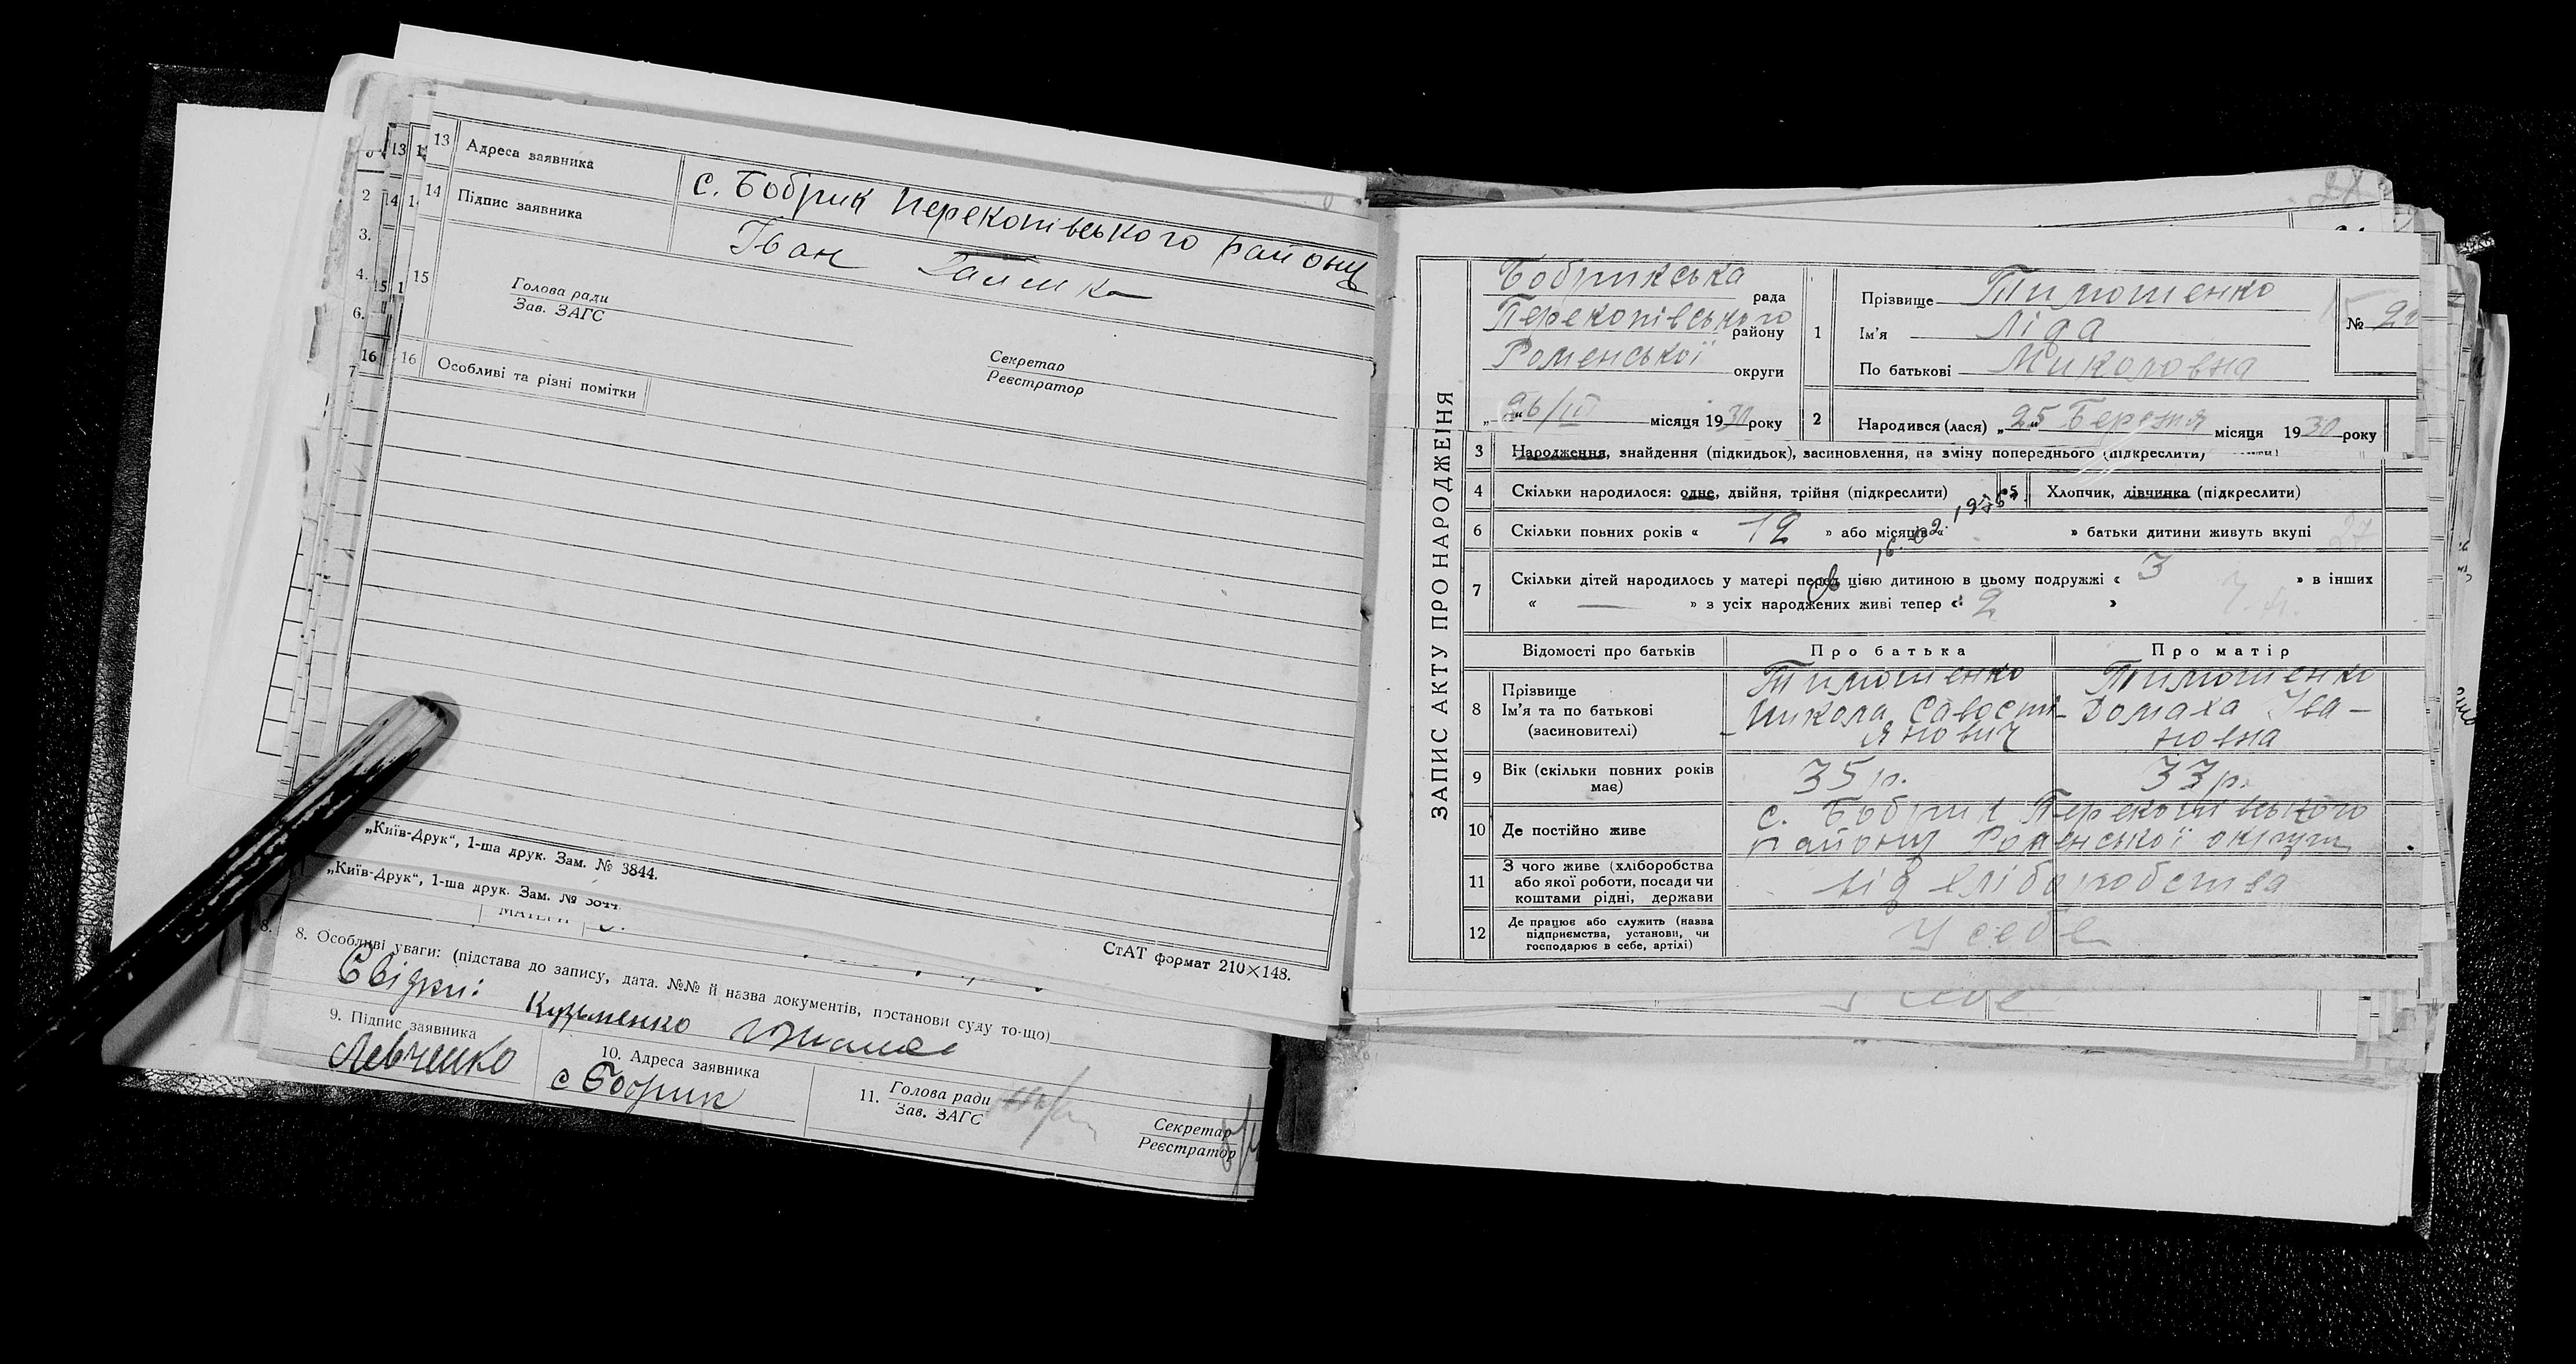 13 Адреса заявника с. Бобрик Перекопівського району
14 Підпис заявника Іван
15
Голова ради
Зав. ЗАГС
Секретар
Реєстратор
16 Особливі та різні помітки
„Київ-Друк“, 1-ша друк. Зам. № 3844.
СтАТ формат 210×148.
„Київ-Друк“, 1-ша друк. Зам. №
8. Особливі уваги: (підстава до запису, дата. №№ й назва документів, постанови суду то-що)
Свідки: Кузьменко
9. Підпис заявника
Левченко
10. Адреса заявника
с Бобрик
11. Голова ради
Зав. ЗАГС
Секретар
Реєстратор
ЗАПИС АКТУ ПРО НАРОДЖЕННЯ
Бобрикська рада
Перекопівського району
Роменської округи
„26/III місяця 1930 року
1 Прізвище Тимошенко
Ім'я Ліда
По батькові Миколовна
№
2 Народився (лася) „25“ Березня місяця 1930 року
3 Народження, знайдення (підкидьок), засиновлення, на зміну попереднього (підкреслити)
4 Скільки народилося: одне, двійня, трійня (підкреслити)
5 Хлопчик, дівчинка (підкреслити)
6 Скільки повних років « 12 » або місяців « » батьки дитини живуть вкупі
7 Скільки дітей народилось у матері перед цією дитиною в цьому подружжі « 3 » в інших
« — » з усіх народжених живі тепер « 2 »
Відомості про батьків Про батька Про матір
8 Прізвище
Ім'я та по батькові
(засиновителі)
Тимошенко
Микола Савости-
янович
Тимошенко
Домаха Ива-
новна
9 Вік (скільки повних років
має)
35 р. 33 р.
10 Де постійно живе
с. Бобрик Перекопівського
району Роменської округи
11 З чого живе (хліборобства
або якої роботи, посади чи
коштами рідні, держави
від хліборобства
12 Де працює або служить (назва
підприємства, установи, чи
господарює в себе, артілі)
У себе